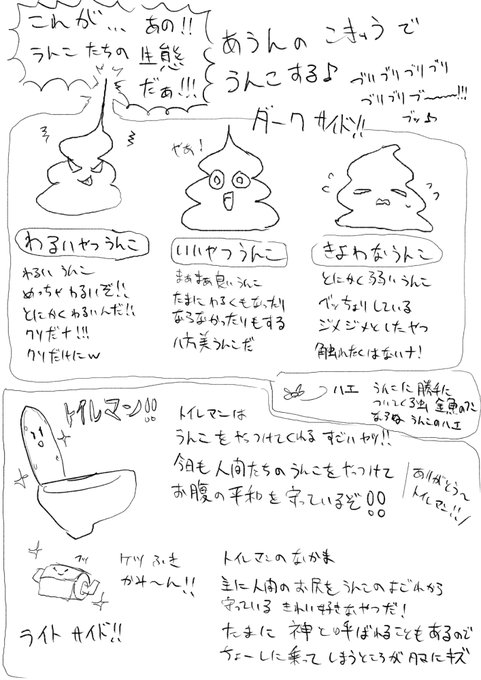 これが… あの!!
うんこたちの生態
だぁ!!!
あうんのこきゅうで
うんこする♪
ブリブリブリブリ
ブリブリブ〜〜!!!
ブッ♪
ダークサイド!!
やぁ!
わるいやつうんこ
わるいうんこ
めっちゃわるいぞ!!
とにかくわるいんだ!!
クソだナ!!!
クソだけにw
いいやつうんこ
まぁまぁ良いうんこ
たまにわるくもなったり
ならなかったりもする
八方美うんこだ
きよわなうんこ
とにかく弱いうんこ
ベッちょりしている
ジメジメとしたヤツ
触れたくはないナ!
ハエ
うんこに勝手に
ついてくる虫 金魚のフン
ならぬ うんこのハエ
トイレマン!!
トイレマンは
うんこをやっつけてくれるすごいヤツ!!
今日も人間たちのうんこをやっつけて
お腹の平和を守っているぞ!!
ありがとう〜
トイレマン!!
フッ
ケツふき
かみ〜ん!!
トイレマンのなかま
主に人間のお尻をうんこのよごれから
守っている きれい好きなやつだ!
たまに 神と呼ばれることもあるので
ちょーしに乗ってしまうところが玉にキズ
ライトサイド!!